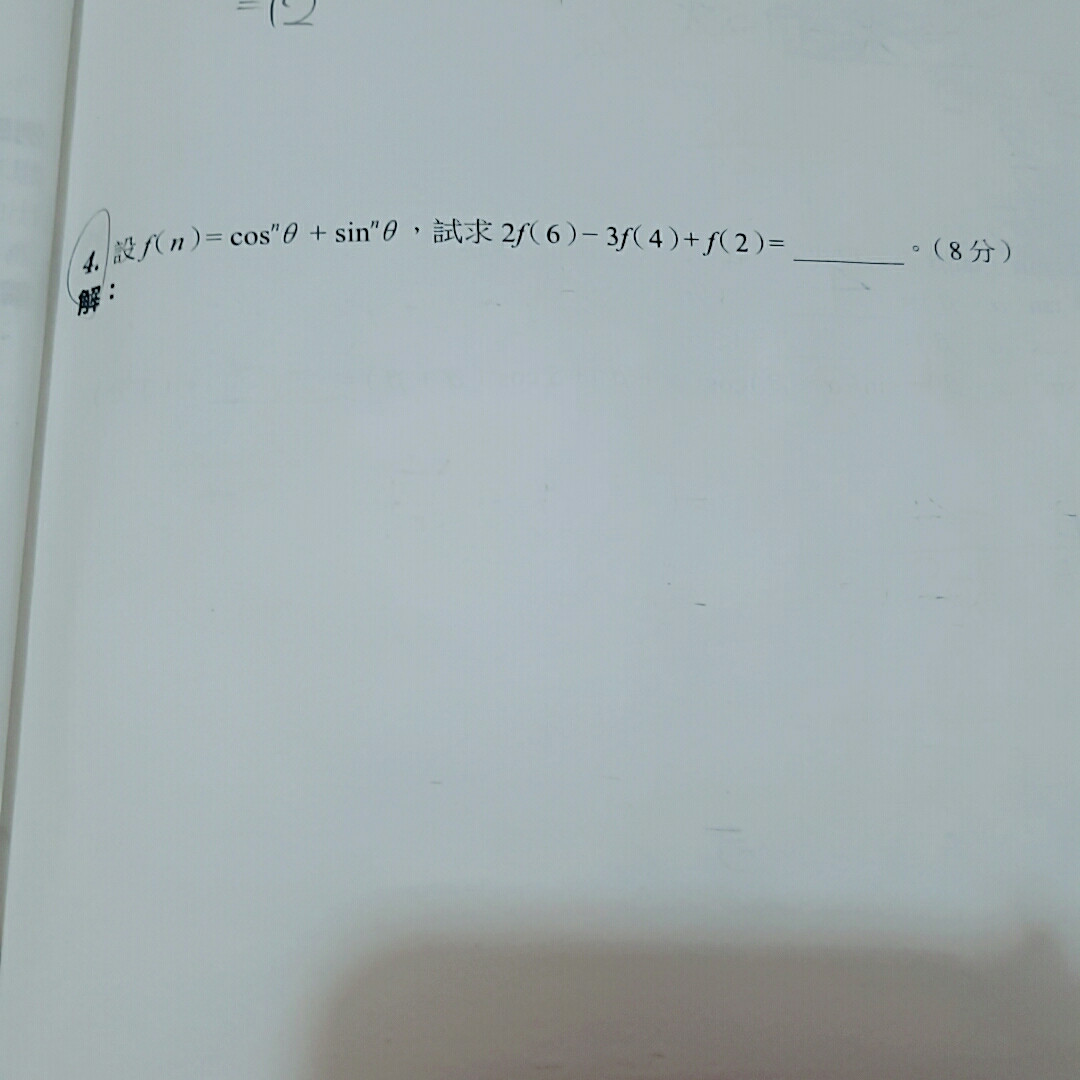 4. 設 f(n)=cosⁿθ + sinⁿθ，試求 2f(6)−3f(4)+f(2)=________。(8分)
解：